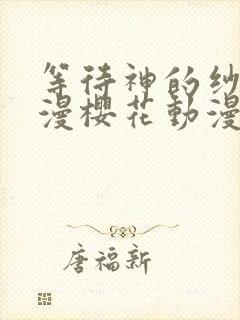 等待神的纱
漫櫻花動漫
唐福新